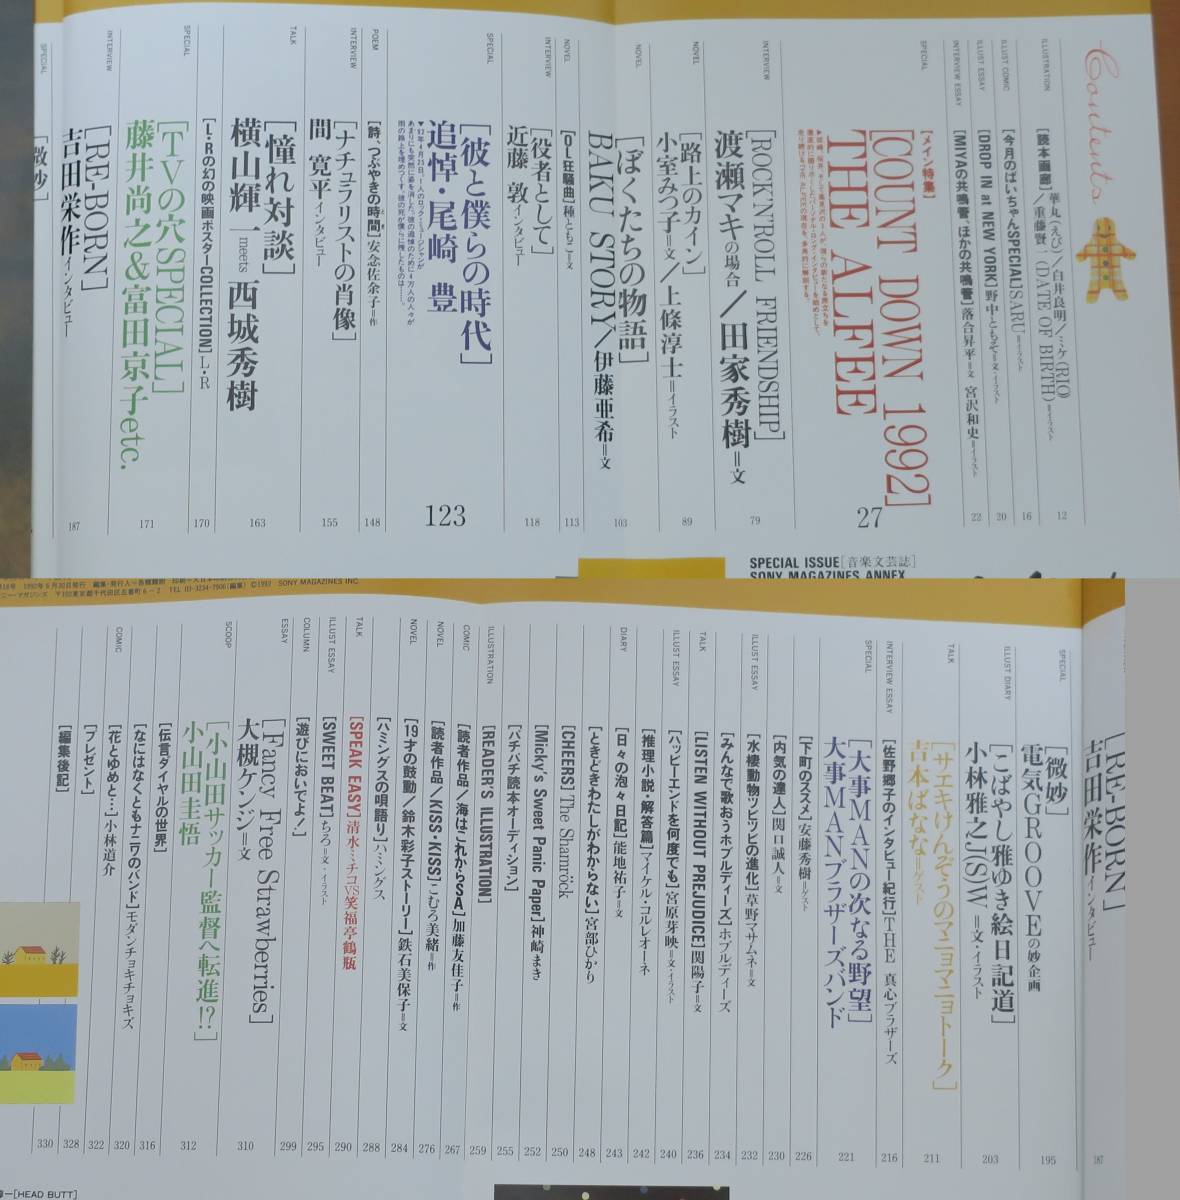 Contents
ILLUSTRATION
[読本画廊] 華丸(えび)／白井良明／ミケ(RIO)
／重藤賢一(DATE OF BIRTH)＝イラスト
12
ILLUST COMIC
[今月のぱいちゃんSPECIAL] SARU＝イラスト
16
ILLUST ESSAY
[DROP IN at NEW YORK] 野中ともそ＝文・イラスト
20
INTERVIEW ESSAY
[MIYAの共鳴管、ほかの共鳴管] 落合昇平＝文 宮沢和史＝イラスト
22
SPECIAL
[メイン特集]
[COUNT DOWN 1992]
THE ALFEE
27
INTERVIEW
[ROCK'N'ROLL FRIENDSHIP]
渡瀬マキの場合／田家秀樹＝文
79
NOVEL
[路上のカイン]
小室みつ子＝文／上條淳士＝イラスト
89
NOVEL
[ぼくたちの物語]
BAKU STORY／伊藤亜希＝文
103
NOVEL
[OL狂騒曲] 種ともこ＝文
113
INTERVIEW
[役者として]
近藤 敦インタビュー
118
SPECIAL
[彼と僕らの時代]
追悼・尾崎 豊
▼'92年4月25日、1人のロック・ミュージシャンが
あまりにも突然に姿を消した。彼の追悼のために4万人の人々が
雨の路上を埋めつくす。彼の死が僕らに残したものは――。
123
POEM
[詩、つぶやきの時間] 安念佐余子＝作
148
INTERVIEW
[ナチュラリストの肖像]
間 寛平インタビュー
155
TALK
[憧れ対談]
横山輝一meets西城秀樹
163
[L・Rの幻の映画ポスターCOLLECTION] L・R
170
SPECIAL
[TVの穴SPECIAL]
藤井尚之&富田京子etc.
171
INTERVIEW
[RE-BORN]
吉田栄作インタビュー
187
SPECIAL
[微妙]
SPECIAL ISSUE [音楽文芸誌]
SONY MAGAZINES ANNEX
1992年9月30日発行
©1992 SONY MAGAZINES INC.
〒102東京都千代田区五番町6-2 TEL 03-3234-7906[編集]
[RE-BORN]
吉田栄作インタビュー
187
SPECIAL
[微妙]
電気GROOVEの妙企画
195
ILLUST DIARY
[こばやし雅ゆき絵日記道]
小林雅之J(S)W＝文・イラスト
203
TALK
[サエキけんぞうのマニョマニョトーク]
吉本ばなな＝ゲスト
211
INTERVIEW ESSAY
[佐野郷子のインタビュー紀行] THE 真心ブラザーズ
216
SPECIAL
[大事MANの次なる野望]
大事MANブラザーズバンド
221
[下町のススメ] 安藤秀樹＝ゲスト
226
[内気の達人] 関口誠人＝文
230
ILLUST ESSAY
[水棲動物ツピツピの進化] 草野マサムネ＝文
232
[みんなで歌おうホブルディーズ] ホブルディーズ
234
TALK
[LISTEN WITHOUT PREJUDICE] 関陽子＝文
236
ILLUST ESSAY
[ハッピーエンドを何度でも] 宮原芽映＝文・イラスト
240
[推理小説・解答篇] マイケル・コルレオーネ
242
DIARY
[日々の泡々日記] 能地祐子＝文
243
[ときどきわたしがわからない] 宮部ひかり
248
[CHEERS] The Shamröck
250
[Micky's Sweet Panic Paper] 神崎まき
252
[パチパチ読本オーディション]
255
ILLUSTRATION
[READER'S ILLUSTRATION]
259
COMIC
[読者作品／海はこれからSSA] 加藤友佳子＝作
267
NOVEL
[読者作品／KISS・KISS] こむろ美緒＝作
276
NOVEL
[19才の鼓動／鈴木彩子ストーリー] 鉄石美保子＝文
284
[ハミングスの唄語り] ハミングス
288
TALK
[SPEAK EASY] 清水ミチコVS笑福亭鶴瓶
290
ILLUST ESSAY
[SWEET BEAT] ちろ＝文・イラスト
295
COLUMN
[遊びにおいでよ!]
299
ESSAY
[Fancy Free Strawberries]
大槻ケンジ＝文
310
SCOOP
[小山田サッカー監督へ転進!?]
小山田圭悟
312
[伝言ダイヤルの世界]
316
[なにはなくともナニワのバンド] モダンチョキチョキズ
320
COMIC
[花とゆめと…] 小林道介
322
[プレゼント]
328
[編集後記]
330
[HEAD BUTT]